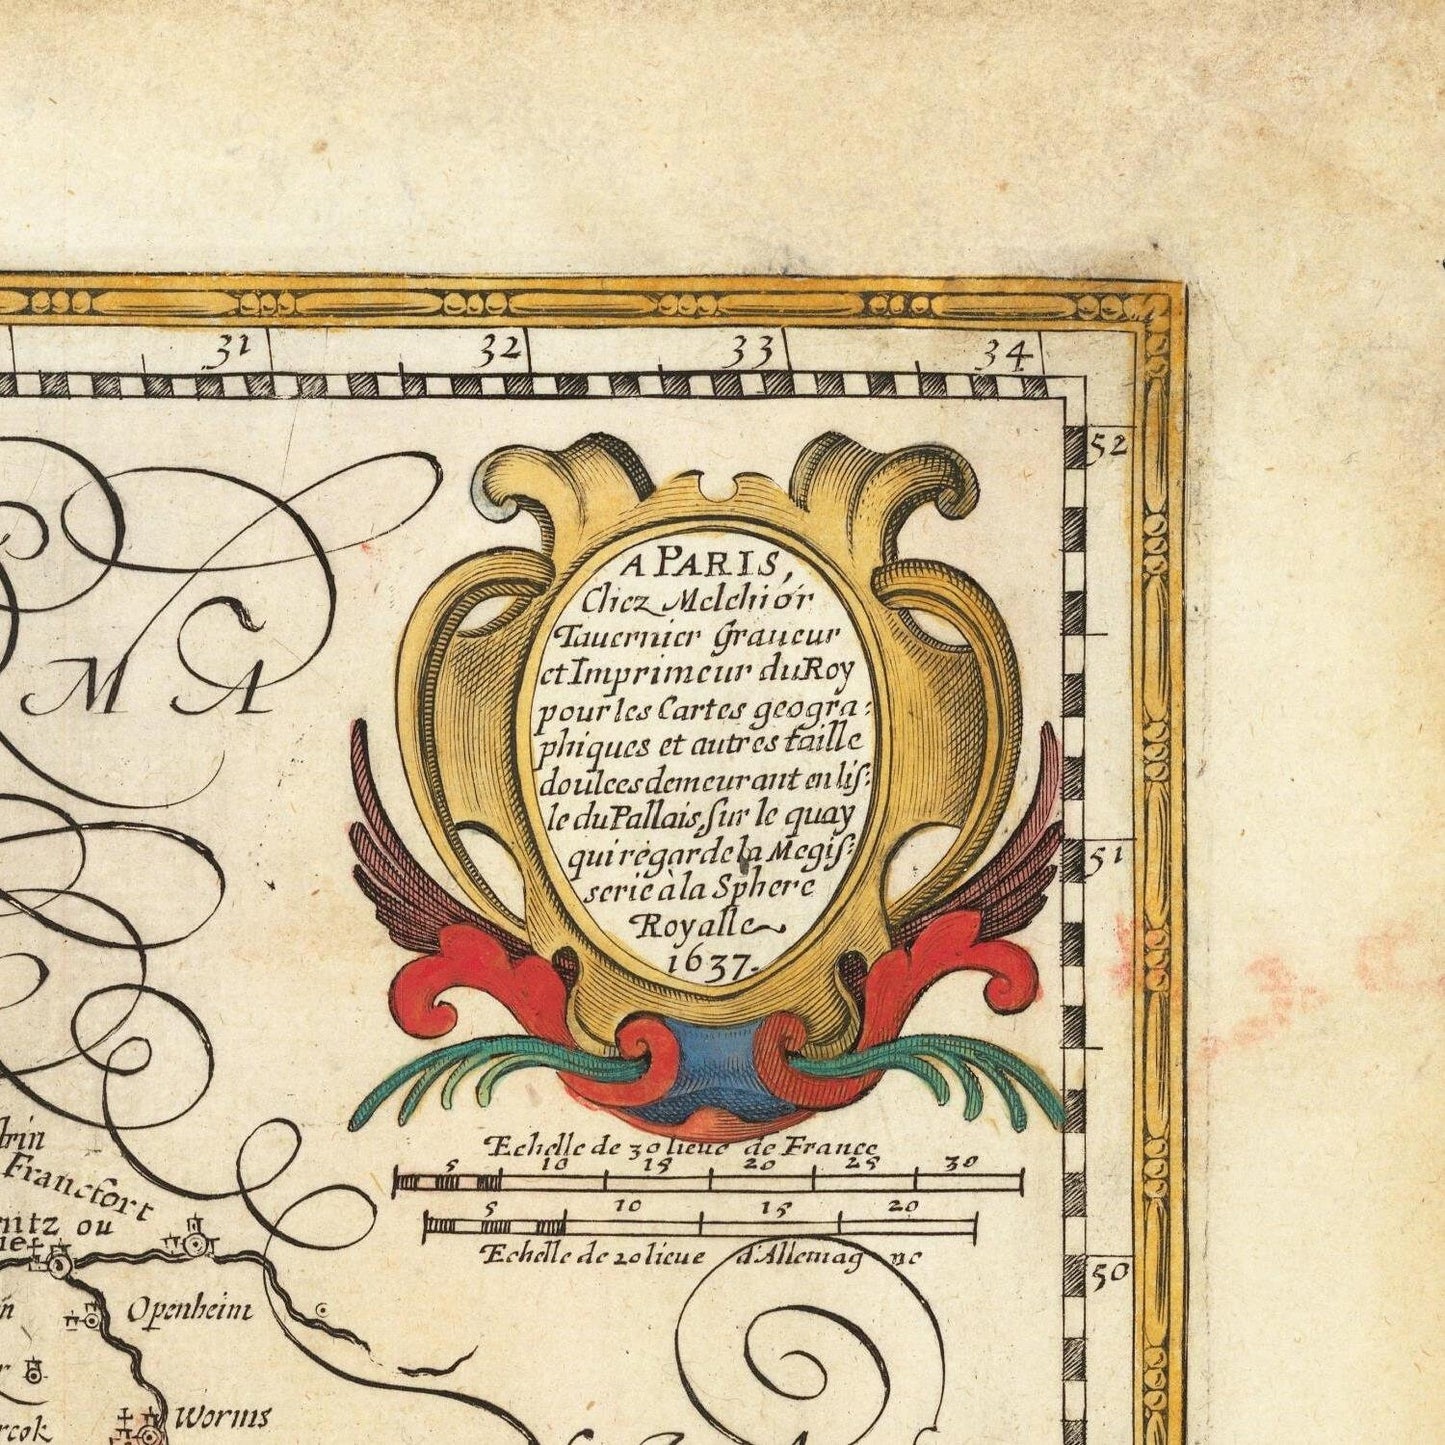 31 32 33 34
52
A PARIS,
Chez Melchior
Tauernier Graueur
et Imprimeur du Roy
pour les Cartes geogra:
phiques et autres taille
doulces demeurant en lis:
le du Pallais, sur le quay
qui regarde la Megis:
serie à la Sphere
Royalle
1637.
M A
51
Echelle de 30 lieue de France
5 10 15 20 25 30
5 10 15 20
Echelle de 20 lieue d'Allemagne
Francfort
ou
50
Openheim
Worms